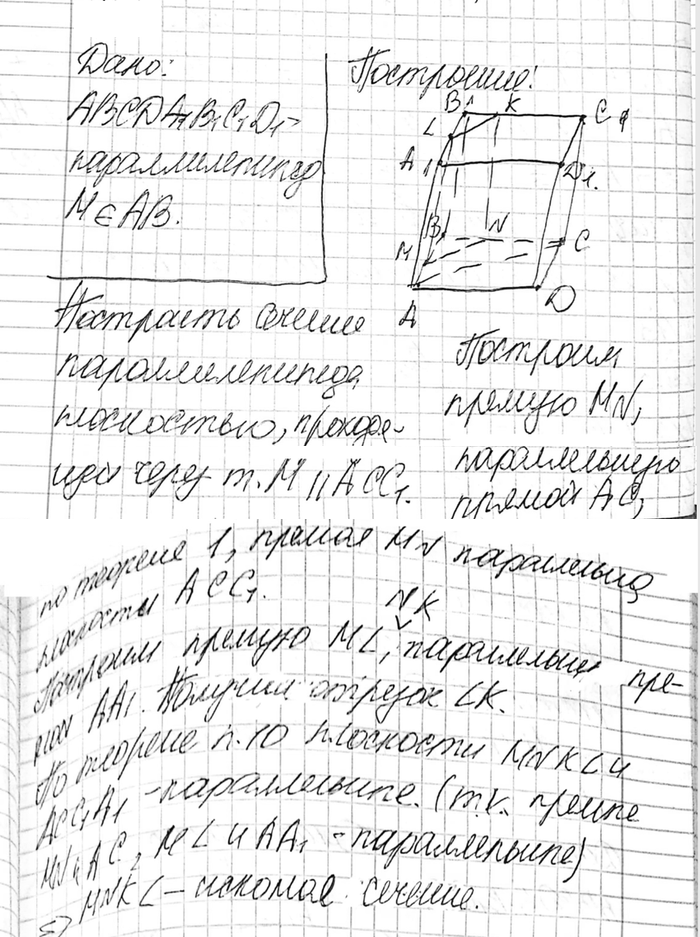 Дано:
ABCDA₁B₁C₁D₁-
параллилепипед
M∈AB.
Построить сечение
параллилепипеда
плоскостью, проходя-
щей через т. M || ACC₁.
Построение:
B₁ K C₁
L
A₁ D₁.
B N C
M
A D
Построим
прямую MN,
параллельную
прямой AC,
по теореме 1, прямая MN параллельна
плоскости ACC₁.
NK
Построим прямую ML, параллельные пря-
мой AA₁. Получим отрезок LK.
По теореме п.10 плоскости MNKL и
ACC₁A₁ -параллельные. (т.к. прямые
MN и AC, ML и AA₁ -параллельные)
=> MNKL – искомое сечение.